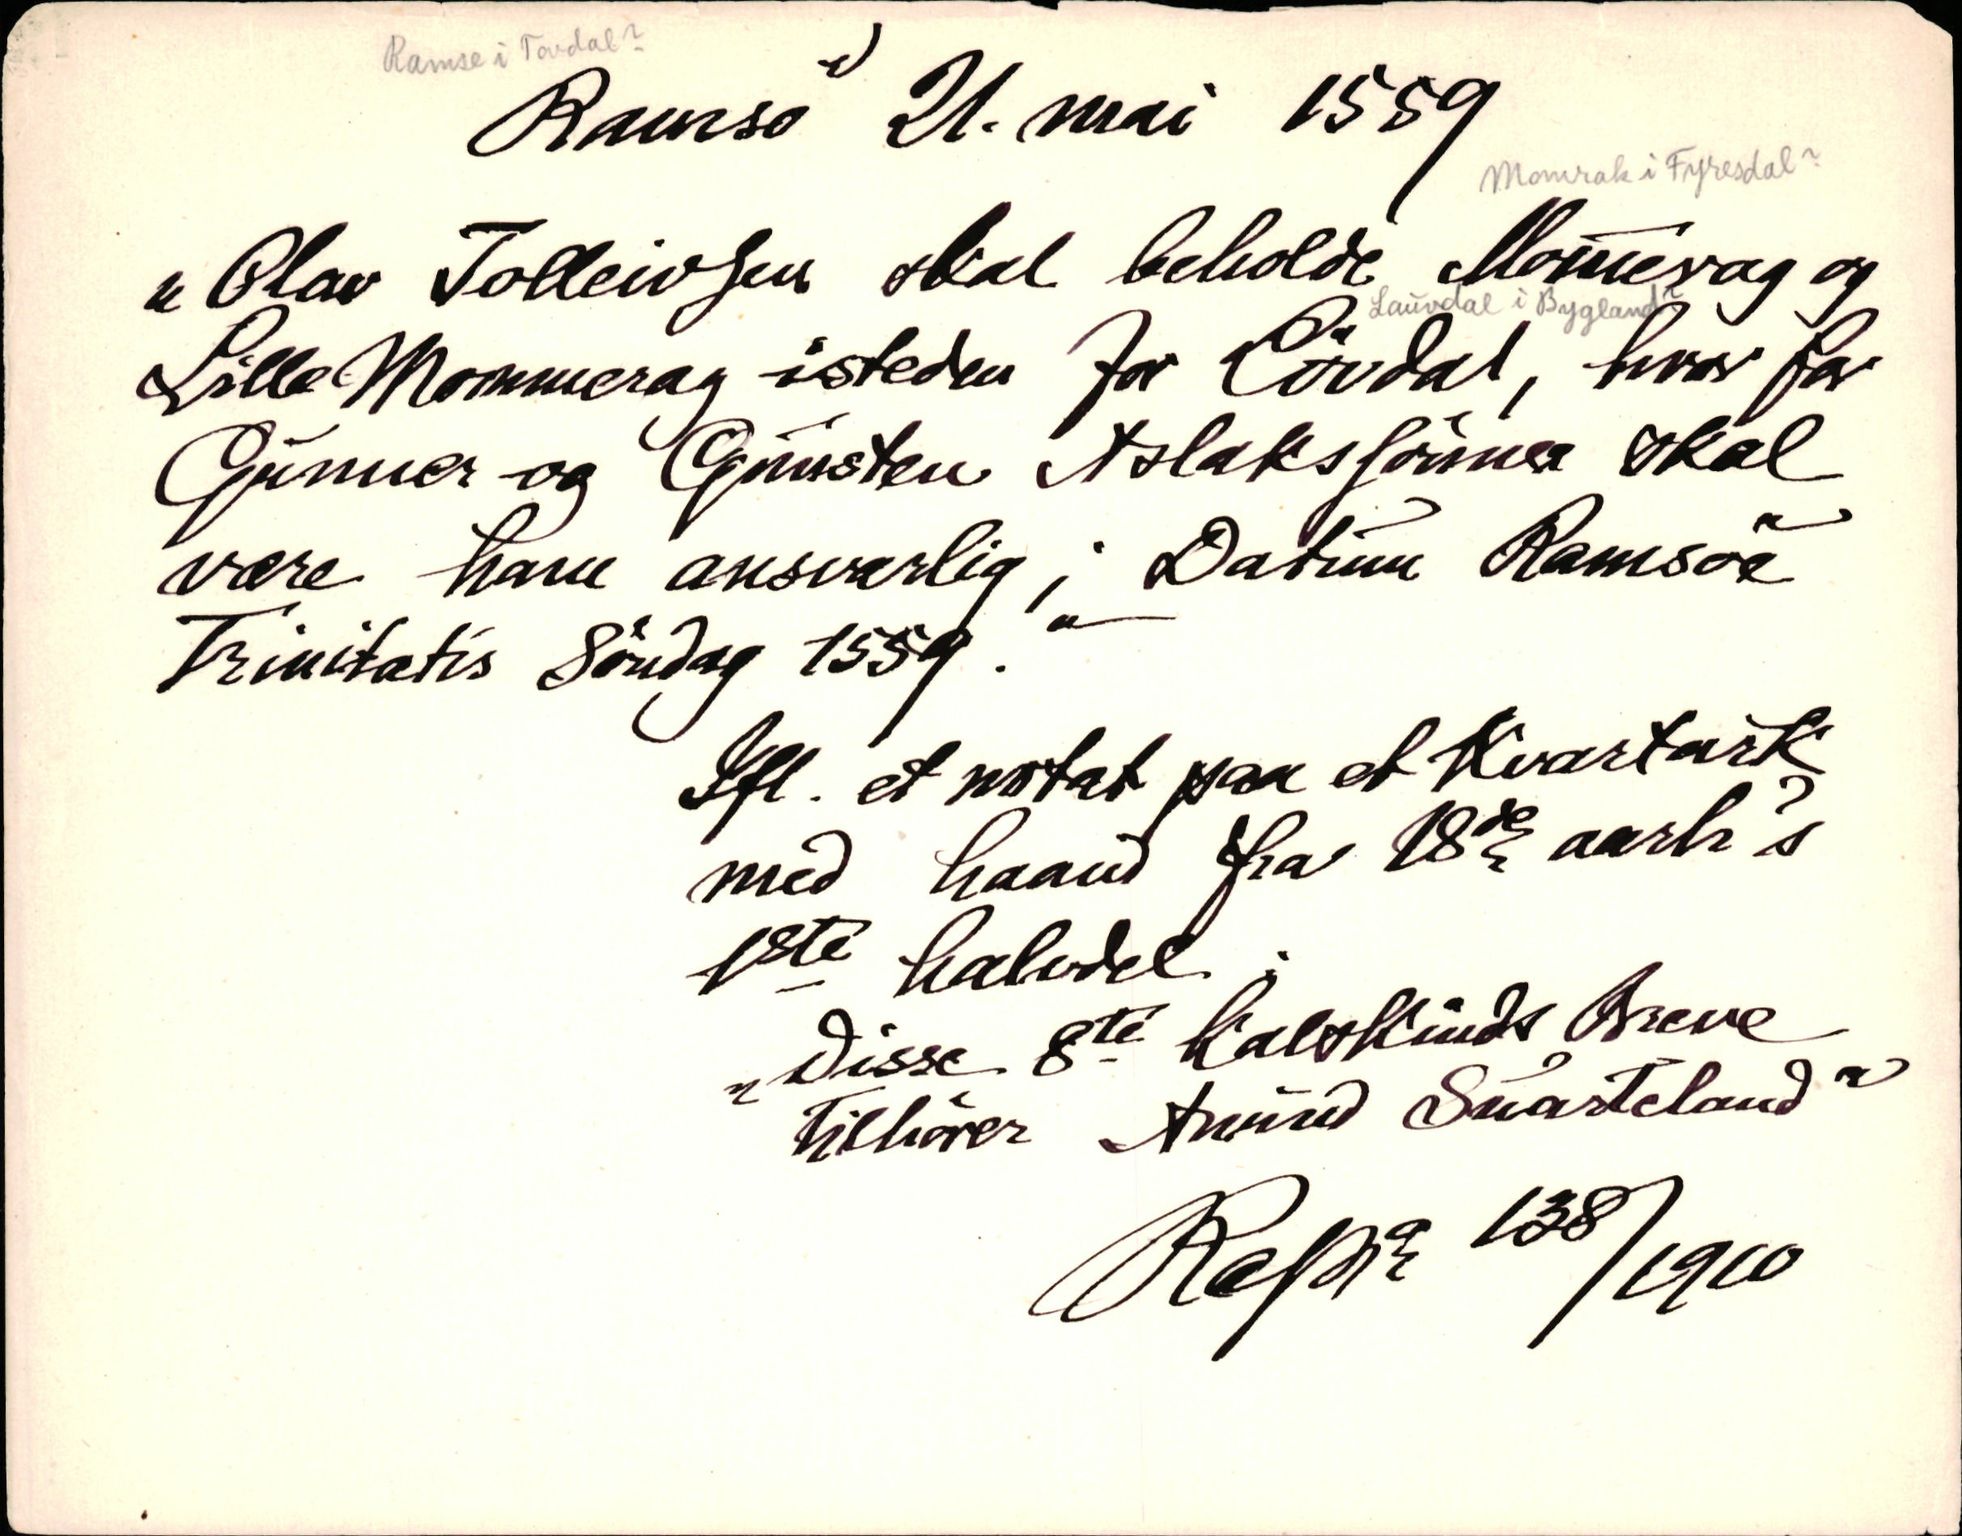 Ramse i Tovdal?
Ramsö 21. mai 1559
Momrak i Fyresdal?
„Olav Tolleivsen skal beholde Mom̄erag og
Lauvdal i Bygland?
Lille Mommerag isteden for Lövdal, hvor for
Gunner og Gunsten Aslakssönner skal
være ham ansvarlig; Datum Ramsöe
Trinitatis Söndag 1559."
Ifl. et notat paa et Kvartark
med haand fra 18de aarh's
1ste halvdel:
„Disse 8te Kalvskinds Breve
tilhörer Anund Suarteland"
138/1910